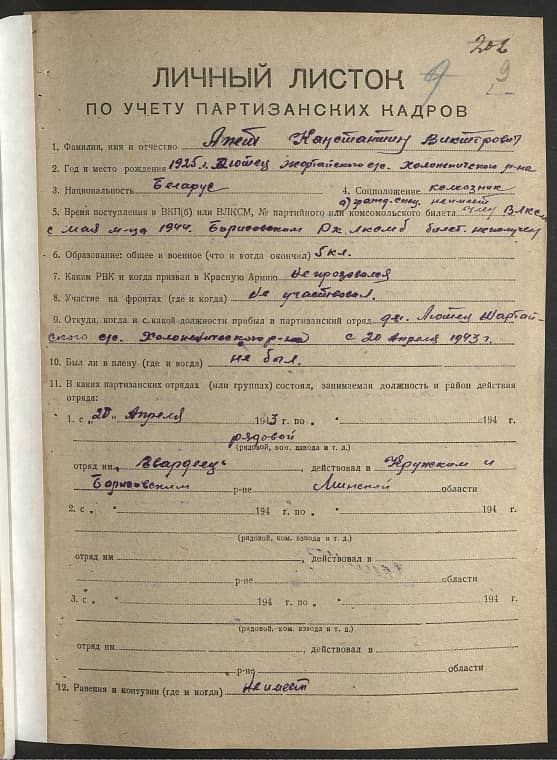 9
ЛИЧНЫЙ ЛИСТОК
ПО УЧЕТУ ПАРТИЗАНСКИХ КАДРОВ
1. Фамилия, имя и отчество Константин Викторович
2. Год и место рождения 1925 г. с/с. Холопенического р-на
3. Национальность Беларус 4. Соцположение колхозник
не имеет
5. Время поступления в ВКП(б) или ВЛКСМ, № партийного или комсомольского билета член ВЛКСМ
с мая м-ца 1944. Борисовским билет не получен
6. Образование: общее и военное (что и когда окончил) 5 кл.
7. Каким РВК и когда призван в Красную Армию Не призовался
8. Участие на фронтах (где и когда) Не участвовал.
9. Откуда, когда и с какой должности прибыл в партизанский отряд дер.
ского с/с. Холопенического р-на с 20 апреля 1943 г.
10. Был ли в плену (где и когда) не был.
11. В каких партизанских отрядах (или группах) состоял, занимаемая должность и район действия
отряда:
1. с „20“ Апреля 1943 г. по „ “ 194 г.
рядовой
(рядовой, ком. взвода и т. д.)
отряд им. Гвардеец, действовал в Крупском и
Борисовским р-не Минской области
2. с „ “ 194 г. по „ “ 194 г.
(рядовой, ком. взвода и т. д.)
отряд им , действовал в
р-не области
3. с „ “ 194 г. по „ “ 194 г.
(рядовой, ком. взвода и т. д.)
отряд им , действовал в
р-не области
12. Ранения и контузии (где и когда) не имеет